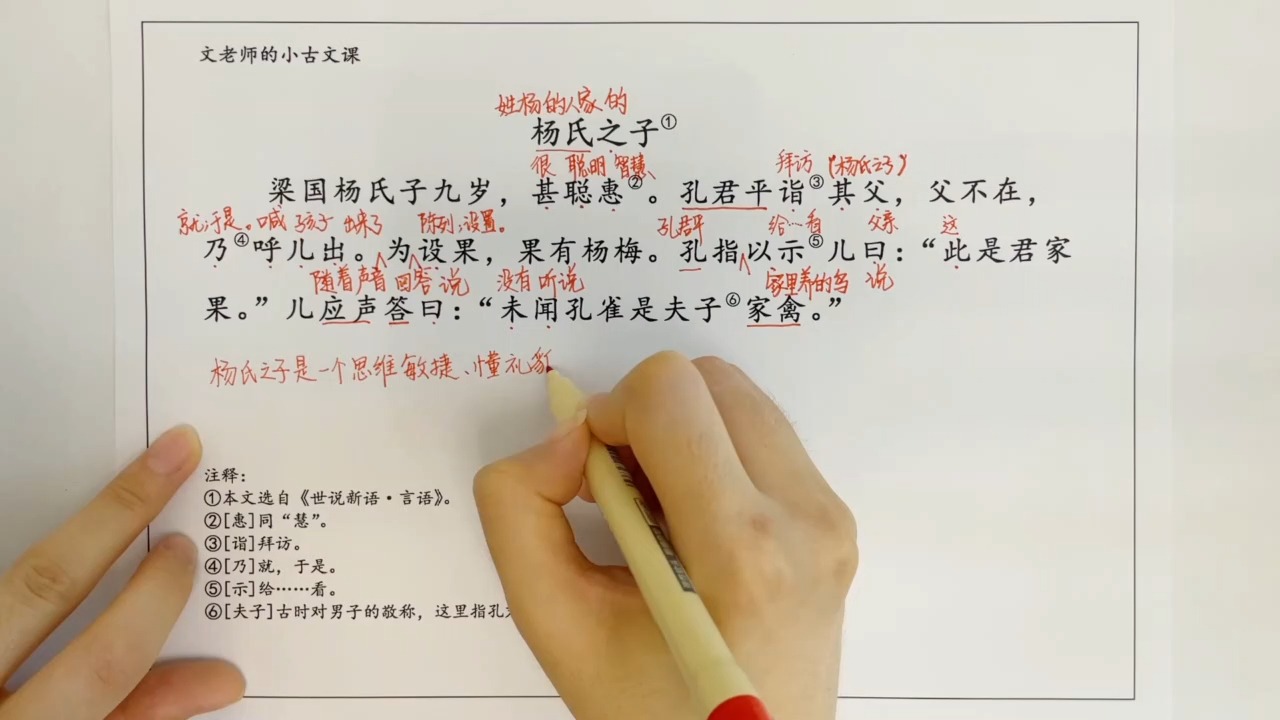 文老师的小古文课
姓杨的人家的
杨氏之子①
很 聪明 智慧 拜访 (杨氏之子)
梁国杨氏子九岁，甚聪惠②。孔君平诣③其父，父不在，
就；于是。喊 孩子 出来了 陈列；设置。 孔君平 给…看 父亲 这
乃④呼儿出。为设果，果有杨梅。孔指以示⑤儿曰：“此是君家
随着声音 回答 说 没有 听说 家里养的鸟 说
果。”儿应声答曰：“未闻孔雀是夫子⑥家禽。”
杨氏之子是一个思维敏捷、懂礼
注释：
①本文选自《世说新语·言语》。
②[惠]同“慧”。
③[诣]拜访。
④[乃]就，于是。
⑤[示]给……看。
⑥[夫子]古时对男子的敬称，这里指孔